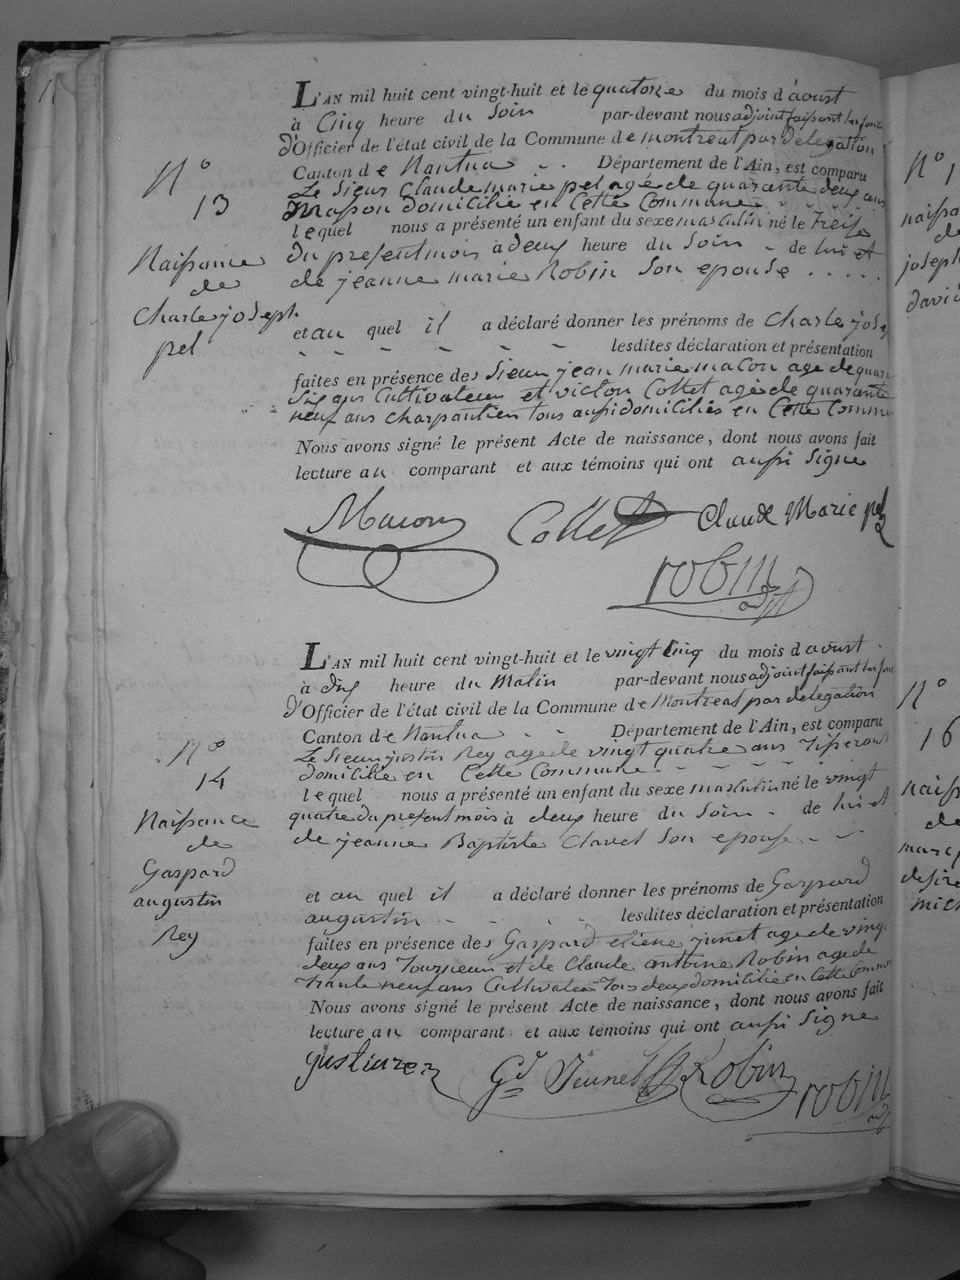 L'AN mil huit cent vingt-huit et le quatorze du mois d'aoust
à Cinq heure du Soir par-devant nous adjoint faisant les fonc
d'Officier de l'état civil de la Commune de montreal par délégation
Canton de Nantua Département de l'Ain, est comparu
Le Sieur Claude marie pel agé de quarante deux ans
Masson domicilié en Cette Commune
lequel nous a présenté un enfant du sexe masculin né le Treise
du present mois à deux heure du Soir de lui et
de jeanne marie Robin Son epouse
et au quel il a déclaré donner les prénoms de Charle jose
lesdites déclaration et présentation
faites en présence des Sieur jean marie macon age de quara
Six ans Cultivateur et victor Collet agè de quarante
neuf ans charpentier tous aussi domiciliés en Cette Commu
Nous avons signé le présent Acte de naissance, dont nous avons fait
lecture au comparant et aux témoins qui ont aussi Signe
N° 13
Naissance
de
Charle joseph
pel
Macon Collet Claude Marie pel
robin adjt
L'AN mil huit cent vingt-huit et le vingt Cinq du mois d'aoust
à dix heure du Matin par-devant nous adjoint faisant les fonc
d'Officier de l'état civil de la Commune de Montreal par delegation
Canton de Nantua Département de l'Ain, est comparu
Le Sieur justin Rey age de vingt quatre ans Tisserand
domicilie en Cette Commune
lequel nous a présenté un enfant du sexe masculin né le vingt
quatre du present mois à deux heure du Soir de lui et
de jeanne Baptiste Clavel Son epouse
et au quel il a déclaré donner les prénoms de Gaspard
augustin lesdites déclaration et présentation
faites en présence des Gaspard etiene junet age de ving
deux ans Tourneur et de Claude antoine Robin age de
Trante neuf ans Cultivateur Tous deux domicilie en Cette Commun
Nous avons signé le présent Acte de naissance, dont nous avons fait
lecture au comparant et aux témoins qui ont aussi Signe
N° 14
Naissance
de
Gaspard
augustin
Rey
justin rey Gd Junet Robin robin
adjt
N° 1
naissa
de
joseph
david
N°
16
naiss
de
desire
mich